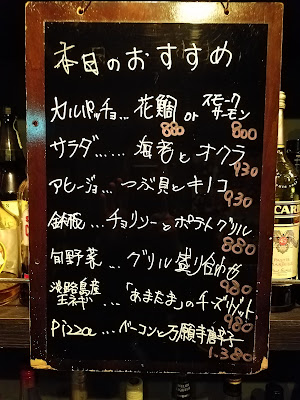 本日のおすすめ
カルパッチョ… 花鯛 or スモークサーモン
880 800
サラダ…… 海老とオクラ
930
アヒージョ… つぶ貝とキノコ
930
鉄板 … チョリソーとポテトグリル
880
旬野菜 … グリル盛り合わせ
980
淡路島産玉ネギ … 「あまたま」のチーズリゾット
Pizza … ベーコンと万願寺唐辛子
1.380
BACARDI